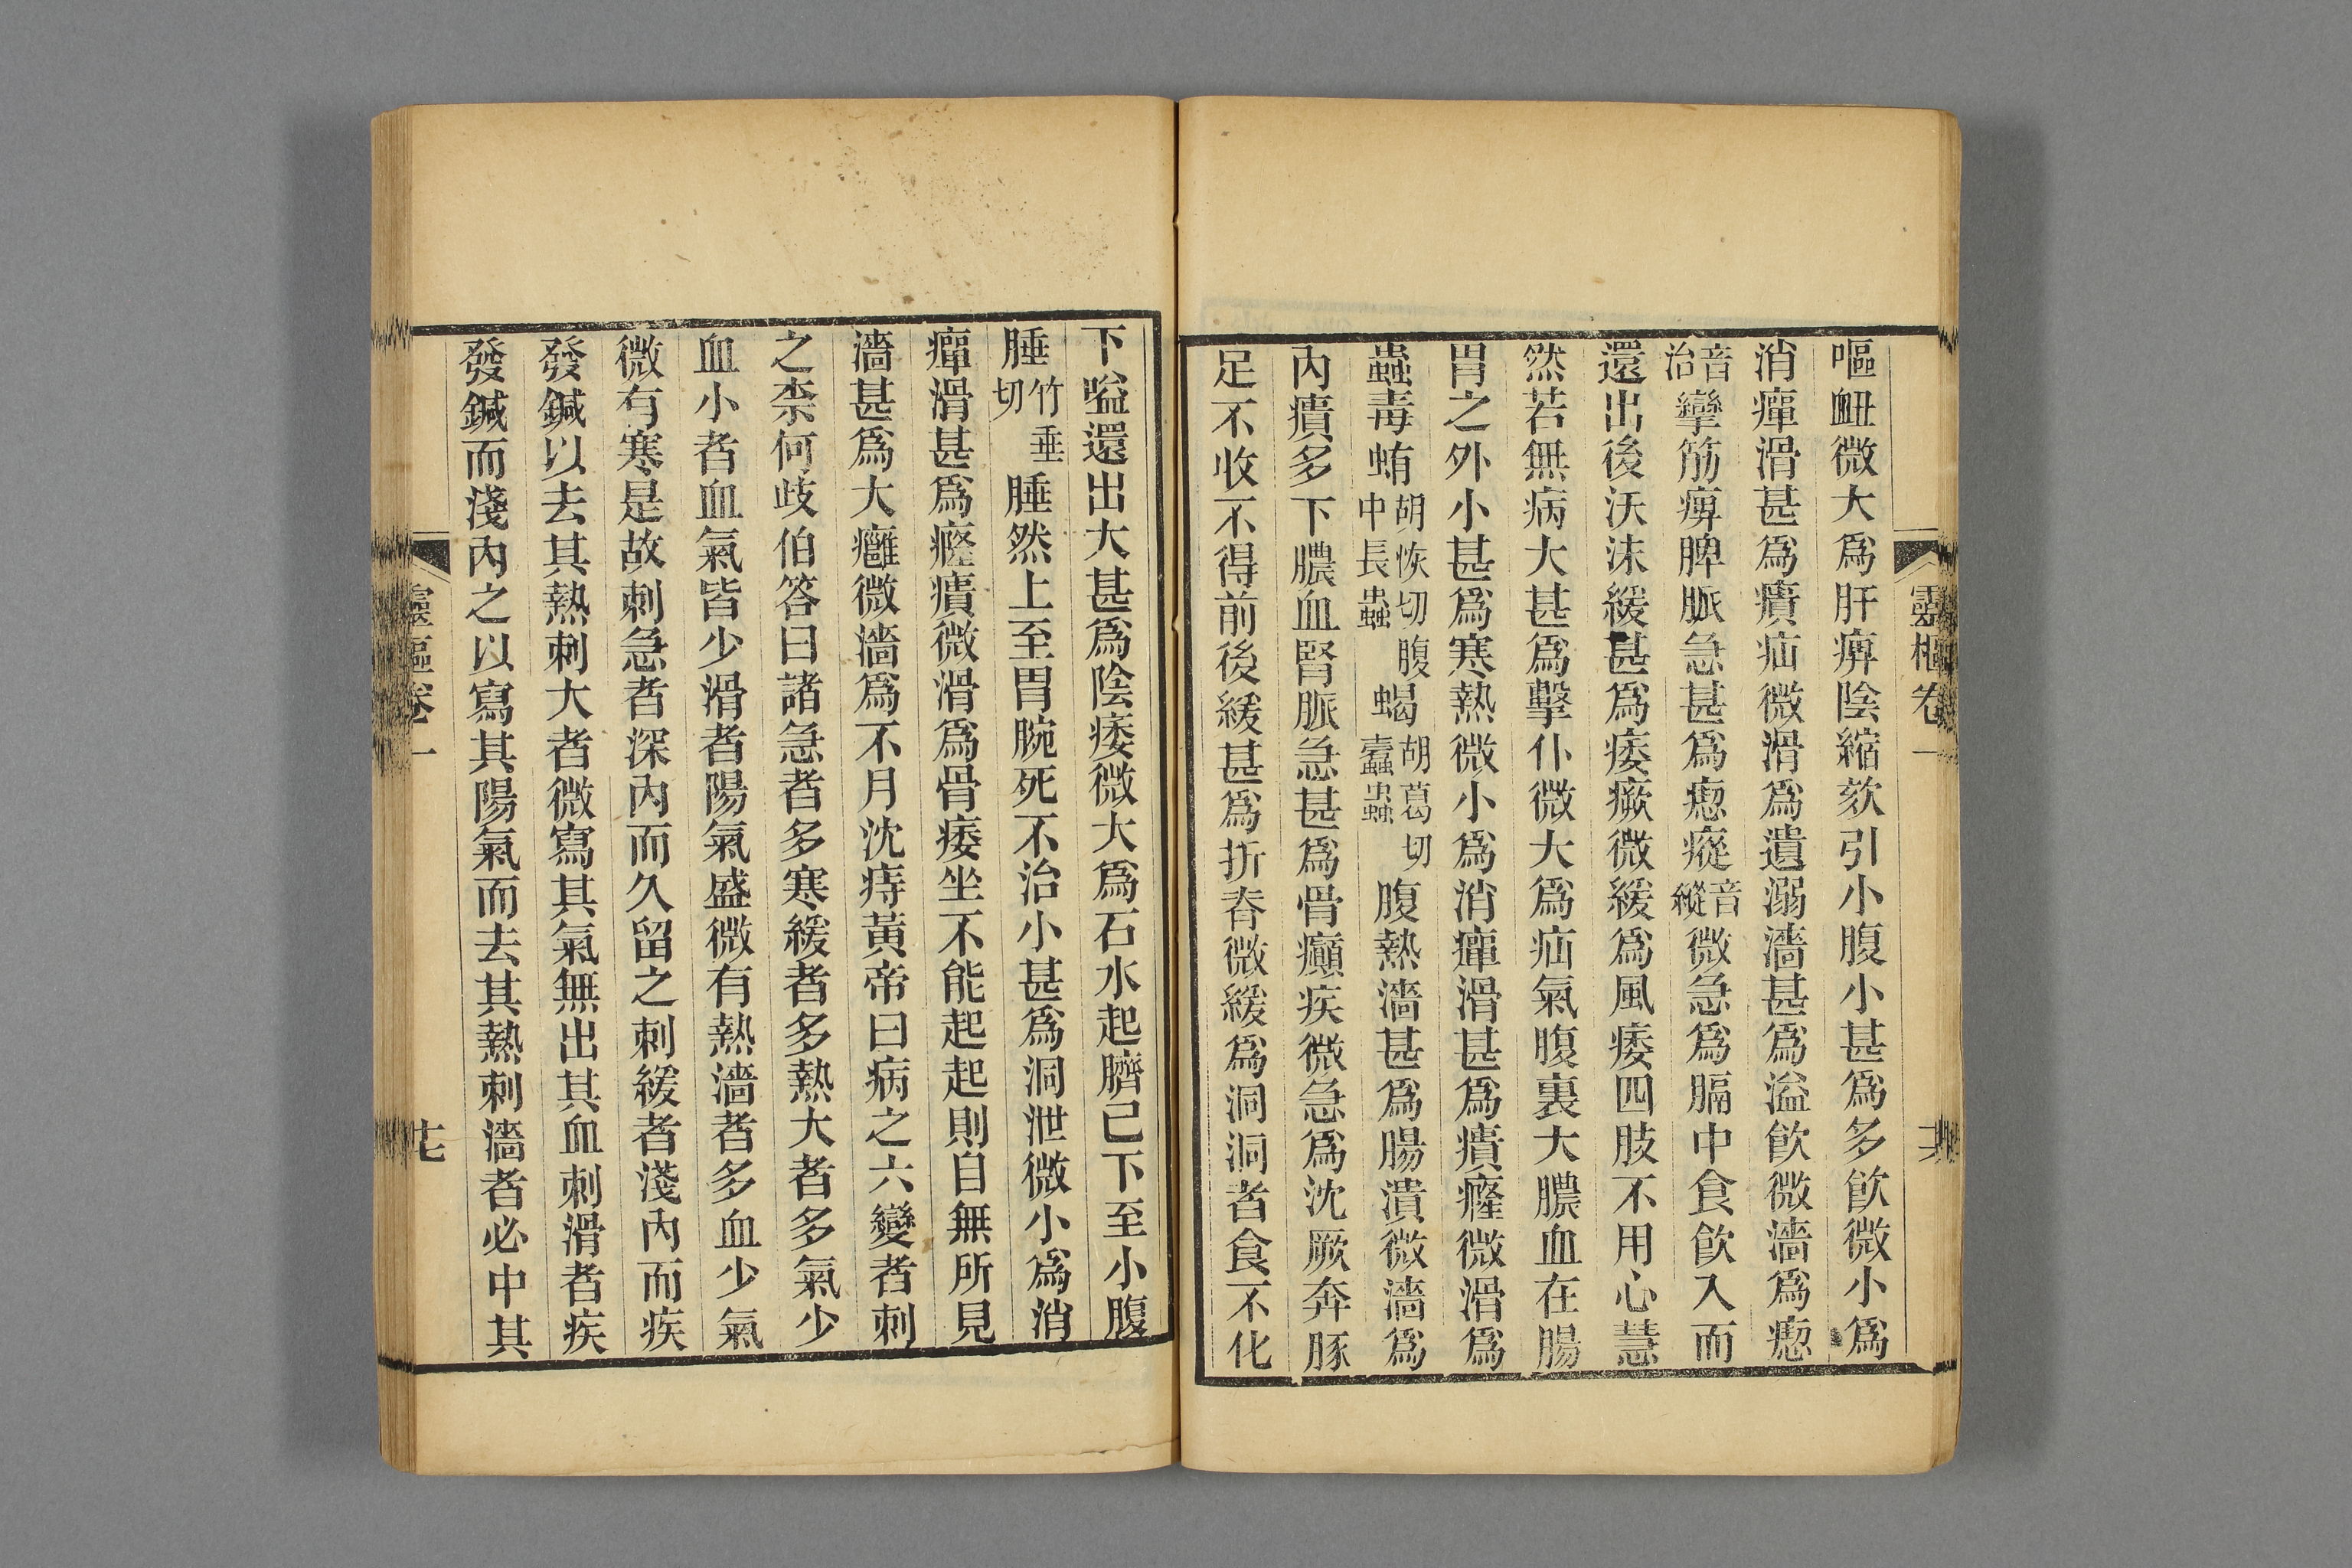 靈樞卷一
嘔衄微大爲肝痹陰縮欬引小腹小甚爲多飮微小爲
消癉滑甚爲㿉疝微滑爲遺溺濇甚爲溢飮微濇爲瘛
音治攣筋痹脾脈急甚爲瘛瘲音縱微急爲膈中食飮入而
還出後沃沫緩甚爲痿㾜微緩爲風痿四肢不用心慧
然若無病大甚爲擊仆微大爲疝氣腹裏大膿血在腸
胃之外小甚爲寒熱微小爲消癉滑甚爲㿉癃微滑爲
蟲毒蛕胡恢切腹中長蟲蝎胡葛切蠹蟲腹熱濇甚爲腸㿉微濇爲
內㿉多下膿血腎脈急甚爲骨癲疾微急爲沈厥奔豚
足不收不得前後緩甚爲折脊微緩爲洞洞者食不化
下嗌還出大甚爲陰痿微大爲石水起臍已下至小腹
腄竹垂切腄然上至胃脘死不治小甚爲洞泄微小爲消
癉滑甚爲癃㿉微滑爲骨痿坐不能起起則目無所見
濇甚爲大癰微濇爲不月沈痔黃帝曰病之六變者刺
之柰何歧伯答曰諸急者多寒緩者多熱大者多氣少
血小者血氣皆少滑者陽氣盛微有熱濇者多血少氣
微有寒是故刺急者深內而久留之刺緩者淺內而疾
發鍼以去其熱刺大者微寫其氣無出其血刺滑者疾
發鍼而淺內之以寫其陽氣而去其熱刺濇者必中其
靈樞卷一
十七